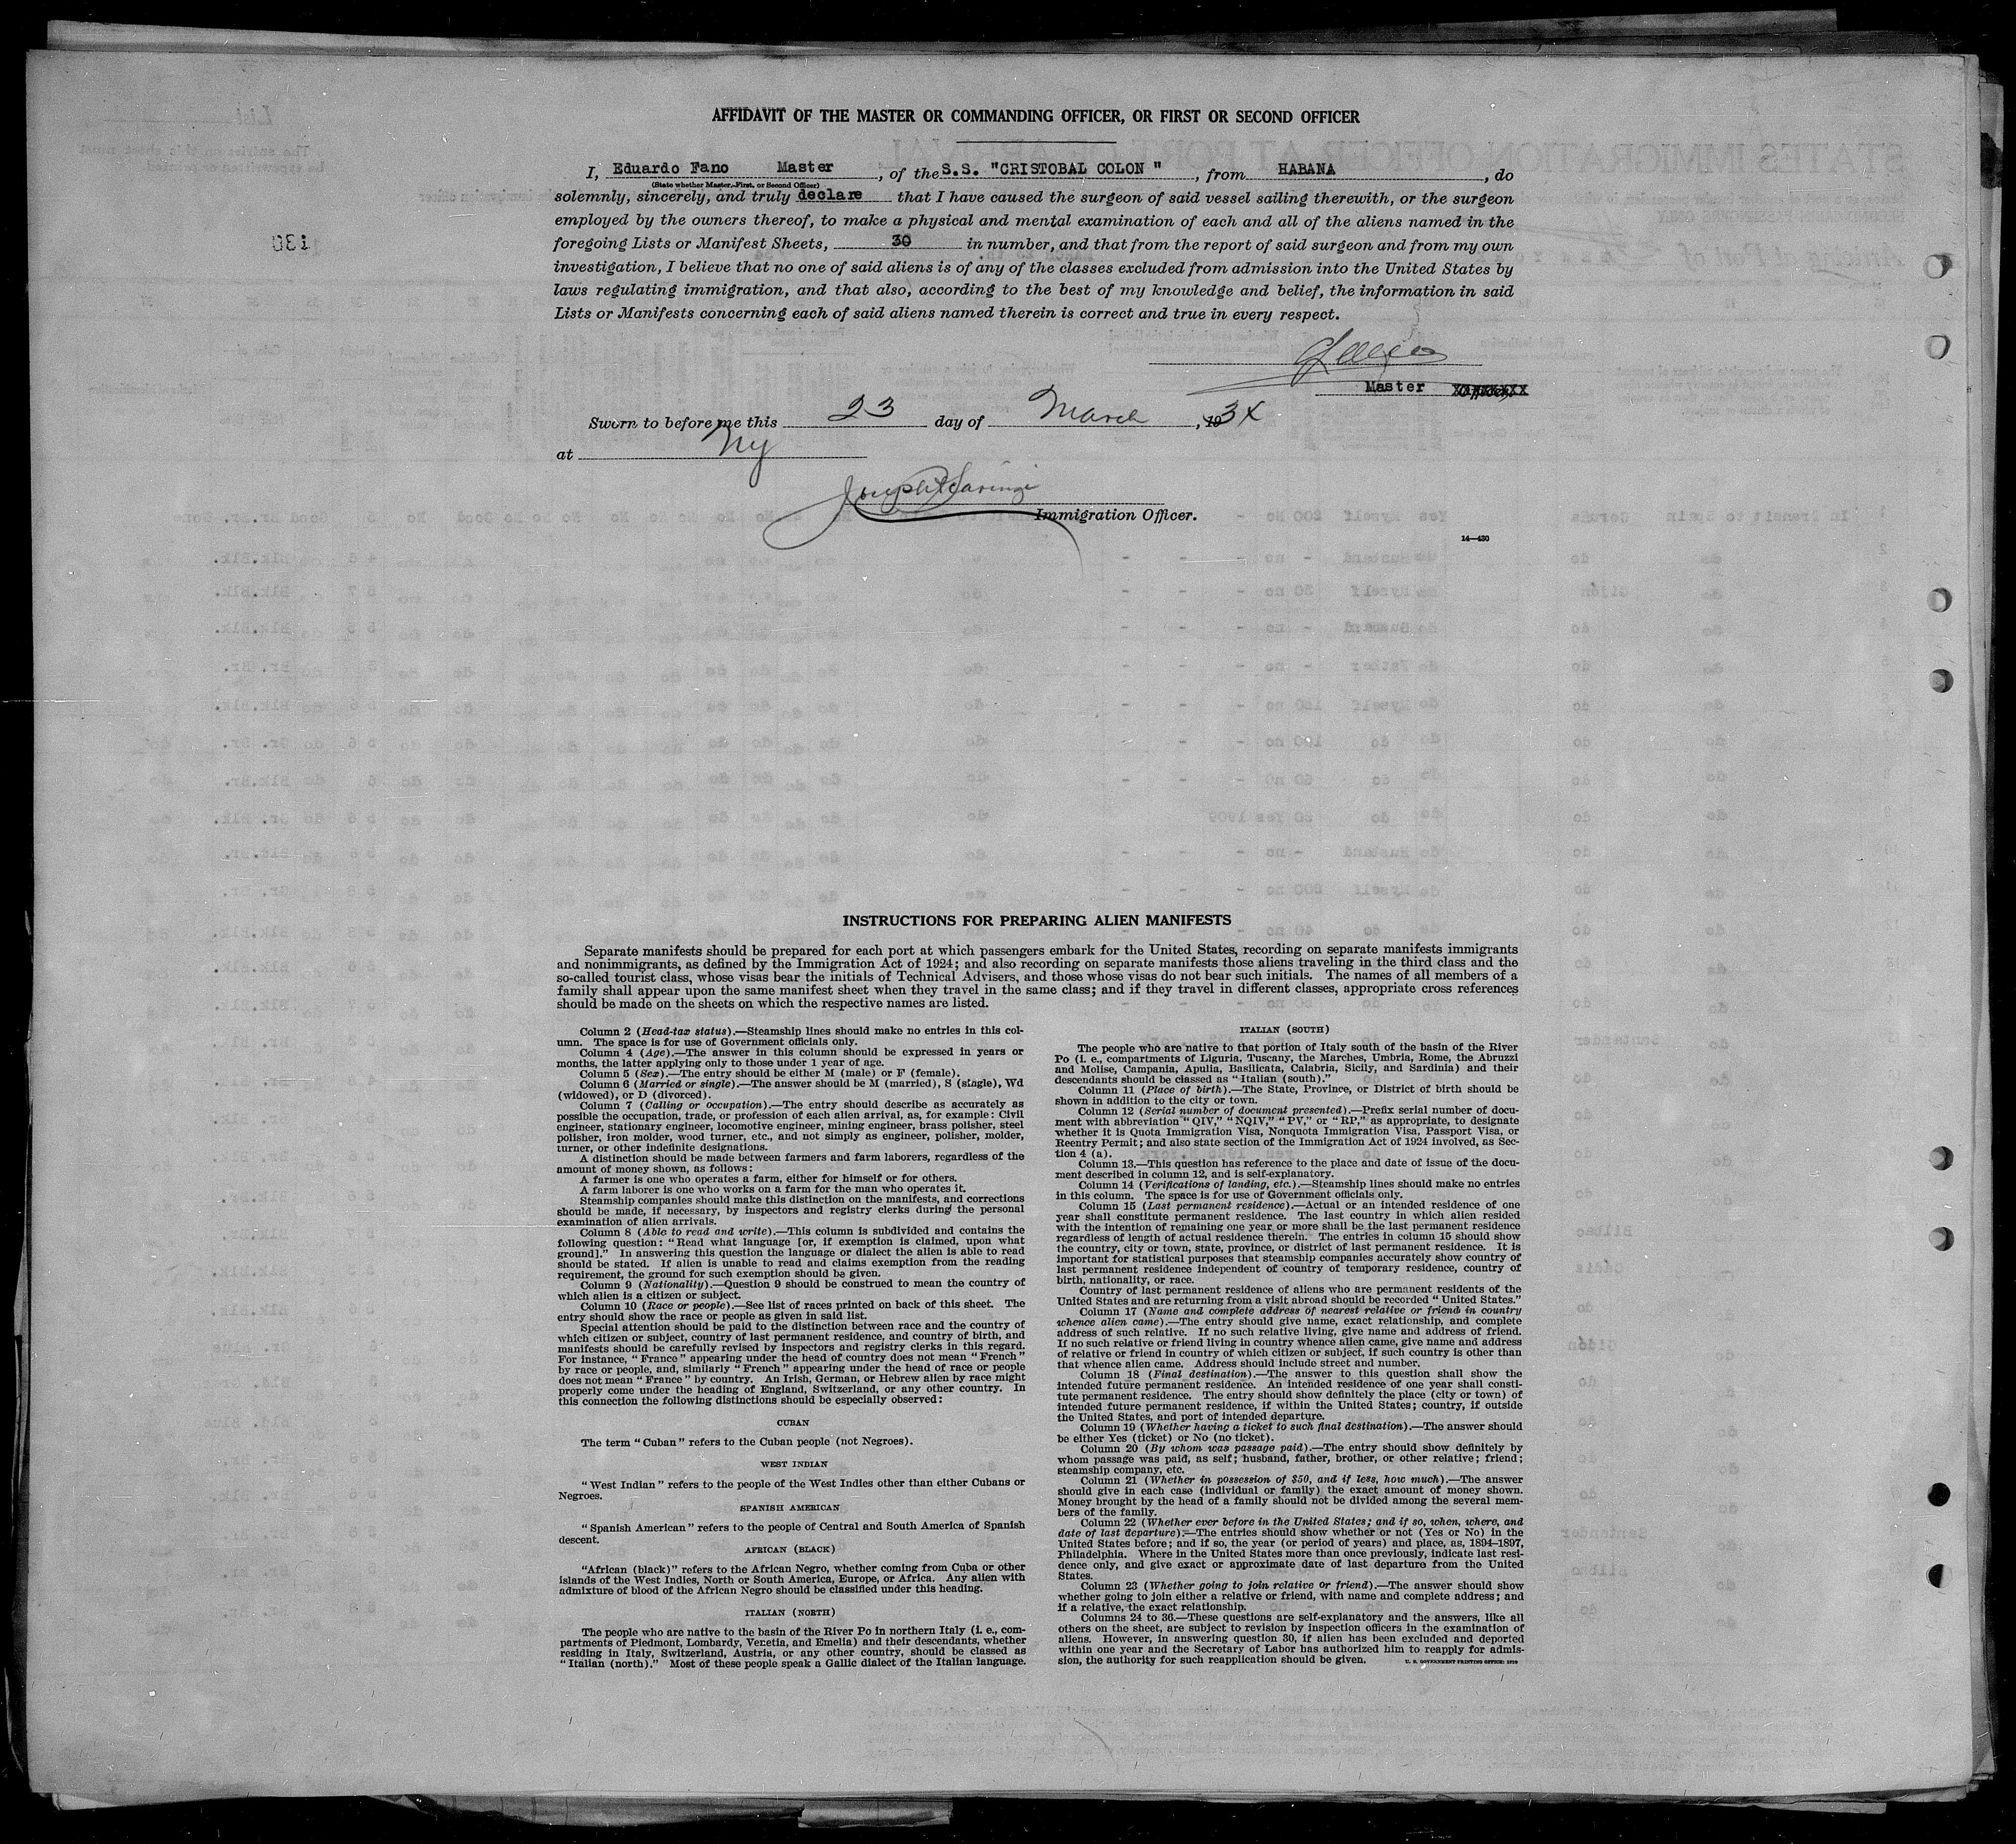 AFFIDAVIT OF THE MASTER OR COMMANDING OFFICER, OR FIRST OR SECOND OFFICER
I, Eduardo Fano Master, of the S.S. "CRISTOBAL COLON ", from HABANA, do
(State whether Master, First, or Second Officer)
solemnly, sincerely, and truly declare that I have caused the surgeon of said vessel sailing therewith, or the surgeon
employed by the owners thereof, to make a physical and mental examination of each and all of the aliens named in the
foregoing Lists or Manifest Sheets, 30 in number, and that from the report of said surgeon and from my own
investigation, I believe that no one of said aliens is of any of the classes excluded from admission into the United States by
laws regulating immigration, and that also, according to the best of my knowledge and belief, the information in said
Lists or Manifests concerning each of said aliens named therein is correct and true in every respect.
Master
Sworn to before me this 23 day of March, 193
at Ny
Immigration Officer.
14—430
INSTRUCTIONS FOR PREPARING ALIEN MANIFESTS
Separate manifests should be prepared for each port at which passengers embark for the United States, recording on separate manifests immigrants
and nonimmigrants, as defined by the Immigration Act of 1924; and also recording on separate manifests those aliens traveling in the third class and the
so-called tourist class, whose visas bear the initials of Technical Advisers, and those whose visas do not bear such initials. The names of all members of a
family shall appear upon the same manifest sheet when they travel in the same class; and if they travel in different classes, appropriate cross references
should be made on the sheets on which the respective names are listed.
Column 2 (Head-tax status).—Steamship lines should make no entries in this col-
umn. The space is for use of Government officials only.
Column 4 (Age).—The answer in this column should be expressed in years or
months, the latter applying only to those under 1 year of age.
Column 5 (Sex).—The entry should be either M (male) or F (female).
Column 6 (Married or single).—The answer should be M (married), S (single), Wd
(widowed), or D (divorced).
Column 7 (Calling or occupation).—The entry should describe as accurately as
possible the occupation, trade, or profession of each alien arrival, as, for example: Civil
engineer, stationary engineer, locomotive engineer, mining engineer, brass polisher, steel
polisher, iron molder, wood turner, etc., and not simply as engineer, polisher, molder,
turner, or other indefinite designations.
A distinction should be made between farmers and farm laborers, regardless of the
amount of money shown, as follows:
A farmer is one who operates a farm, either for himself or for others.
A farm laborer is one who works on a farm for the man who operates it.
Steamship companies should make this distinction on the manifests, and corrections
should be made, if necessary, by inspectors and registry clerks during the personal
examination of alien arrivals.
Column 8 (Able to read and write).—This column is subdivided and contains the
following question: "Read what language [or, if exemption is claimed, upon what
ground]." In answering this question the language or dialect the alien is able to read
should be stated. If alien is unable to read and claims exemption from the reading
requirement, the ground for such exemption should be given.
Column 9 (Nationality).—Question 9 should be construed to mean the country of
which alien is a citizen or subject.
Column 10 (Race or people).—See list of races printed on back of this sheet. The
entry should show the race or people as given in said list.
Special attention should be paid to the distinction between race and the country of
which citizen or subject, country of last permanent residence, and country of birth, and
manifests should be carefully revised by inspectors and registry clerks in this regard.
For instance, "France" appearing under the head of country does not mean "French"
by race or people, and, similarly "French" appearing under the head of race or people
does not mean "France" by country. An Irish, German, or Hebrew alien by race might
properly come under the heading of England, Switzerland, or any other country. In
this connection the following distinctions should be especially observed:
CUBAN
The term "Cuban" refers to the Cuban people (not Negroes).
WEST INDIAN
"West Indian" refers to the people of the West Indies other than either Cubans or
Negroes.
SPANISH AMERICAN
"Spanish American" refers to the people of Central and South America of Spanish
descent.
AFRICAN (BLACK)
"African (black)" refers to the African Negro, whether coming from Cuba or other
islands of the West Indies, North or South America, Europe, or Africa. Any alien with
admixture of blood of the African Negro should be classified under this heading.
ITALIAN (NORTH)
The people who are native to the basin of the River Po in northern Italy (i. e., com-
partments of Piedmont, Lombardy, Venetia, and Emelia) and their descendants, whether
residing in Italy, Switzerland, Austria, or any other country, should be classed as
"Italian (north)." Most of these people speak a Gallic dialect of the Italian language.
ITALIAN (SOUTH)
The people who are native to that portion of Italy south of the basin of the River
Po (i. e., compartments of Liguria, Tuscany, the Marches, Umbria, Rome, the Abruzzi
and Molise, Campania, Apulia, Basilicata, Calabria, Sicily, and Sardinia) and their
descendants should be classed as "Italian (south)."
Column 11 (Place of birth).—The State, Province, or District of birth should be
shown in addition to the city or town.
Column 12 (Serial number of document presented).—Prefix serial number of docu-
ment with abbreviation "QIV," "NQIV," "PV," or "RP," as appropriate, to designate
whether it is Quota Immigration Visa, Nonquota Immigration Visa, Passport Visa, or
Reentry Permit; and also state section of the Immigration Act of 1924 involved, as Sec-
tion 4 (a).
Column 13.—This question has reference to the place and date of issue of the docu-
ment described in column 12, and is self-explanatory.
Column 14 (Verifications of landing, etc.).—Steamship lines should make no entries
in this column. The space is for use of Government officials only.
Column 15 (Last permanent residence).—Actual or an intended residence of one
year shall constitute permanent residence. The last country in which alien resided
with the intention of remaining one year or more shall be the last permanent residence
regardless of length of actual residence therein. The entries in column 15 should show
the country, city or town, state, province, or district of last permanent residence. It is
important for statistical purposes that steamship companies accurately show country of
last permanent residence independent of country of temporary residence, country of
birth, nationality, or race.
Country of last permanent residence of aliens who are permanent residents of the
United States and are returning from a visit abroad should be recorded "United States."
Column 17 (Name and complete address of nearest relative or friend in country
whence alien came).—The entry should give name, exact relationship, and complete
address of such relative. If no such relative living, give name and address of friend.
If no such relative or friend living in country whence alien came, give name and address
of relative or friend in country of which citizen or subject, if such country is other than
that whence alien came. Address should include street and number.
Column 18 (Final destination).—The answer to this question shall show the
intended future permanent residence. An intended residence of one year shall consti-
tute permanent residence. The entry should show definitely the place (city or town) of
intended future permanent residence, if within the United States; country, if outside
the United States, and port of intended departure.
Column 19 (Whether having a ticket to such final destination).—The answer should
be either Yes (ticket) or No (no ticket).
Column 20 (By whom was passage paid).—The entry should show definitely by
whom passage was paid, as self; husband, father, brother, or other relative; friend;
steamship company, etc.
Column 21 (Whether in possession of $50, and if less, how much).—The answer
should give in each case (individual or family) the exact amount of money shown.
Money brought by the head of a family should not be divided among the several mem-
bers of the family.
Column 22 (Whether ever before in the United States; and if so, when, where, and
date of last departure).—The entries should show whether or not (Yes or No) in the
United States before; and if so, the year (or period of years) and place, as, 1894–1897,
Philadelphia. Where in the United States more than once previously, indicate last resi-
dence only, and give exact or approximate date of last departure from the United
States.
Column 23 (Whether going to join relative or friend).—The answer should show
whether going to join either a relative or friend, with name and complete address; and
if a relative, the exact relationship.
Columns 24 to 36.—These questions are self-explanatory and the answers, like all
others on the sheet, are subject to revision by inspection officers in the examination of
aliens. However, in answering question 30, if alien has been excluded and deported
within one year and the Secretary of Labor has authorized him to reapply for admis-
sion, the authority for such reapplication should be given.
U. S. GOVERNMENT PRINTING OFFICE: